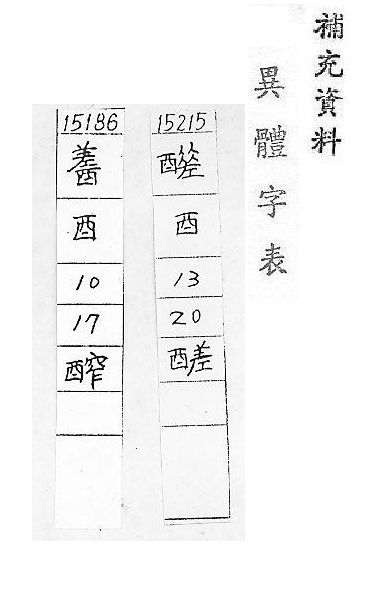 補充資料
異體字表
15215
酉
13
20
醝
15186
酉
10
17
醡